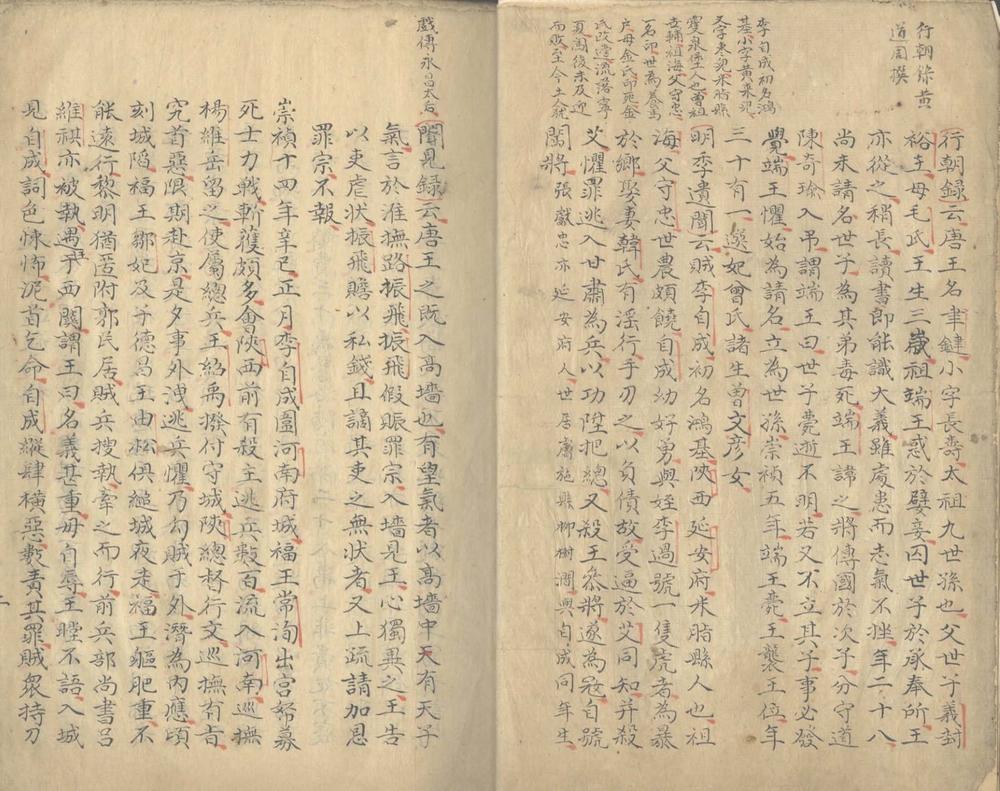 行朝錄黄
道周撰
行朝録云唐王名聿鍵小字長壽太祖九世孫也父世子義封
裕王母毛氏王生三歲祖端王惑於嬖妾囚世子於承奉所王
亦從之稍長讀書即能識大義雖處患而志氣不挫年二十八
尚未請名世子為其弟毒死端王諱之將傳國於次子分守道
陳奇瑜入吊謂端王曰世子薨逝不明若又不立其子事必發
覺端王懼始為請名立為世孫崇禎五年端王薨王襲王位年
三十有一選妃曾氏諸生曾文彦女
李自成初名鴻
基小字黄來児
又字枣児米脂縣
雙泉堡人也曽祖
世輔祖海父守忠
一名印世為養馬
户母金氏印死金
氏改適流落寧
夏閩後未及迎
而敗至今土人就
明李遺聞云賊李自成初名鴻基陝西延安府米脂縣人也祖
海父守忠世農頗饒自成幼好勇與姪李過號一隻虎者為暴
於鄉娶妻韓氏有淫行手刃之以負債故受逼於艾同知并殺
艾懼罪逃入甘肅為兵以功陞把總又殺王叅將遂為冦自號
闖將張獻忠亦延安府人世居膚施縣柳樹澗與自成同年生
戲傳永昌太后
聞見録云唐王之既入高墻也有望氣者以高墻中天有天子
氣言於淮撫路振飛振飛假賑罪宗入墻見王心獨異之王告
以吏虐狀振飛贍以私錢且謫其吏之無状者又上疏請加恩
罪宗不報
崇禎十四年辛巳正月李自成圍河南府城福王常洵出宫帑募
死士力戰斬獲頗多會陝西前有殺主逃兵數百流入河南巡撫
楊維岳留之使屬總兵王紹禹撥付守城陝總督行文巡撫有旨
究首惡限期赴京是夕事外洩逃兵懼乃勾賊于外潛為内應頃
刻城陷福王鄒妃及子德昌王由崧俱縋城夜走福王軀肥重不
能遠行黎明猶匿附郭民居賊兵搜執牵之而行前兵部尚書吕
維祺亦被執遇王于西關謂王曰名義甚重毋自辱王瞠不語入城
見自成詞色怵怖泥首乞命自成縱肆横惡數責其罪賊衆持刀